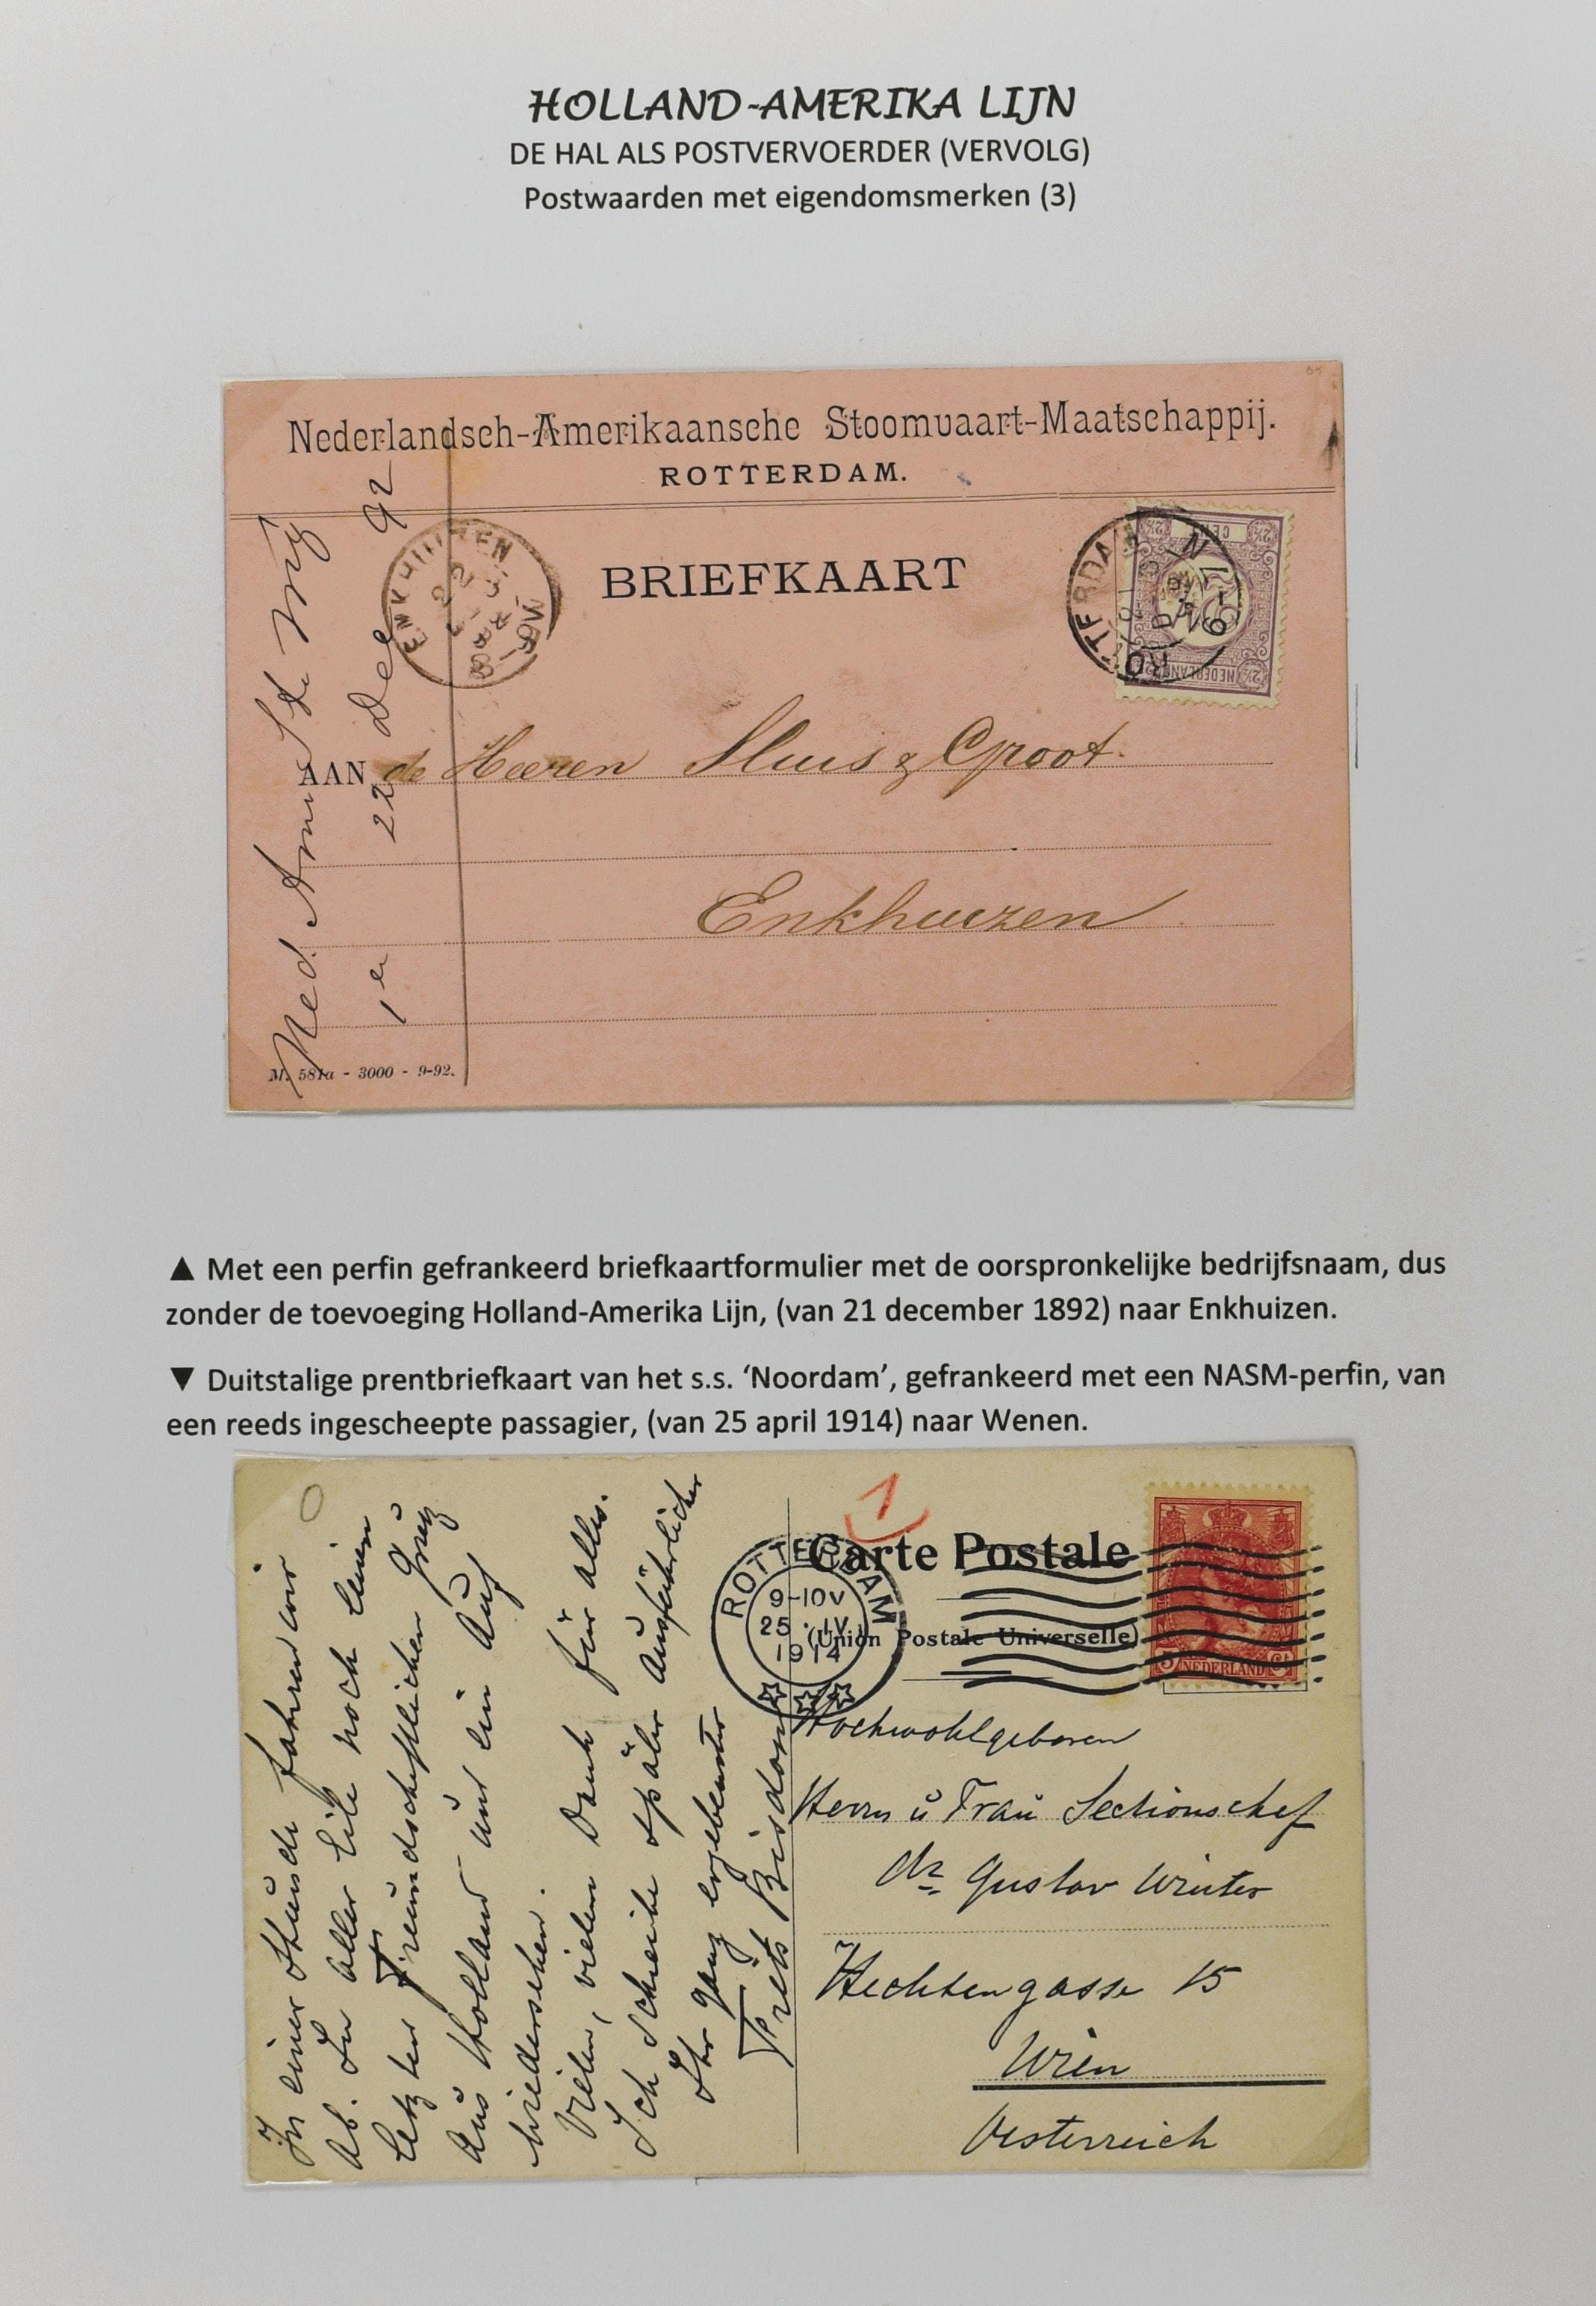 HOLLAND-AMERIKA LIJN
DE HAL ALS POSTVERVOERDER (VERVOLG)
Postwaarden met eigendomsmerken (3)
Nederlandsch-Amerikaansche Stoomvaart-Maatschappij.
ROTTERDAM.
BRIEFKAART
ENKHUIZEN
ROTTERDAM
CENT
NEDERLAND
AAN de Heeren Sluis & Groot.
Enkhuizen
Ned. Am. St. Mij
1e 22 Dec 92
M. 581a - 3000 - 9-92.
▲ Met een perfin gefrankeerd briefkaartformulier met de oorspronkelijke bedrijfsnaam, dus
zonder de toevoeging Holland-Amerika Lijn, (van 21 december 1892) naar Enkhuizen.
▼ Duitstalige prentbriefkaart van het s.s. ‘Noordam’, gefrankeerd met een NASM-perfin, van
een reeds ingescheepte passagier, (van 25 april 1914) naar Wenen.
In einer Stunde fahren wir
ab. In aller Eile noch einen
letzten freundschaftlichen Gruß
aus Holland und ein Auf
wiedersehen.
Vielen, vielen Dank für alles.
Ich schreibe später ausführlicher
Ihr ganz ergebenster
Frits Bisdom
1
Carte Postale
(Union Postale Universelle)
ROTTERDAM
9-10V
25 · IV
1914
5 NEDERLAND Ct
Hochwohlgeboren
Herrn u Frau Sectionschef
Dr Gustav Winter
Hechtengasse 15
Wien
Oesterreich